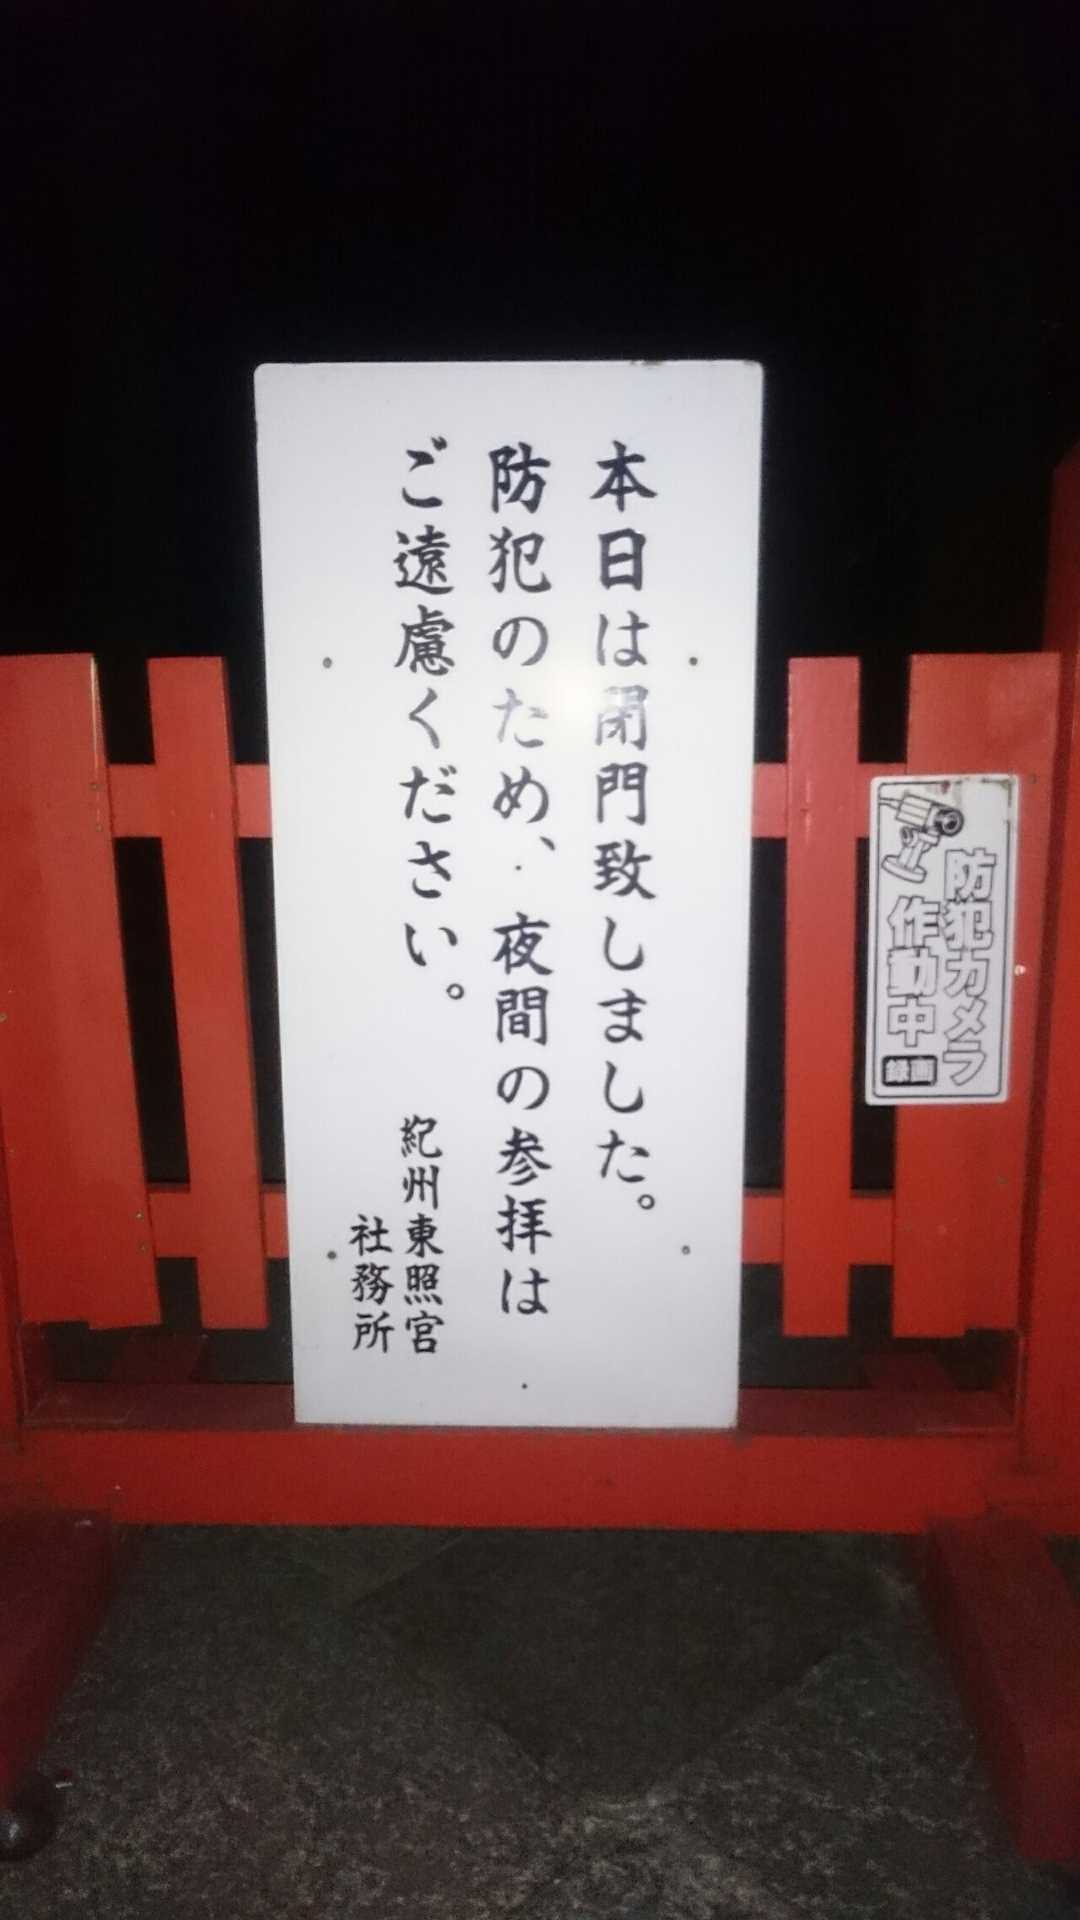 本日は閉門致しました。
防犯のため、夜間の参拝は
ご遠慮ください。
紀州東照宮
社務所
防犯カメラ
作動中
録画